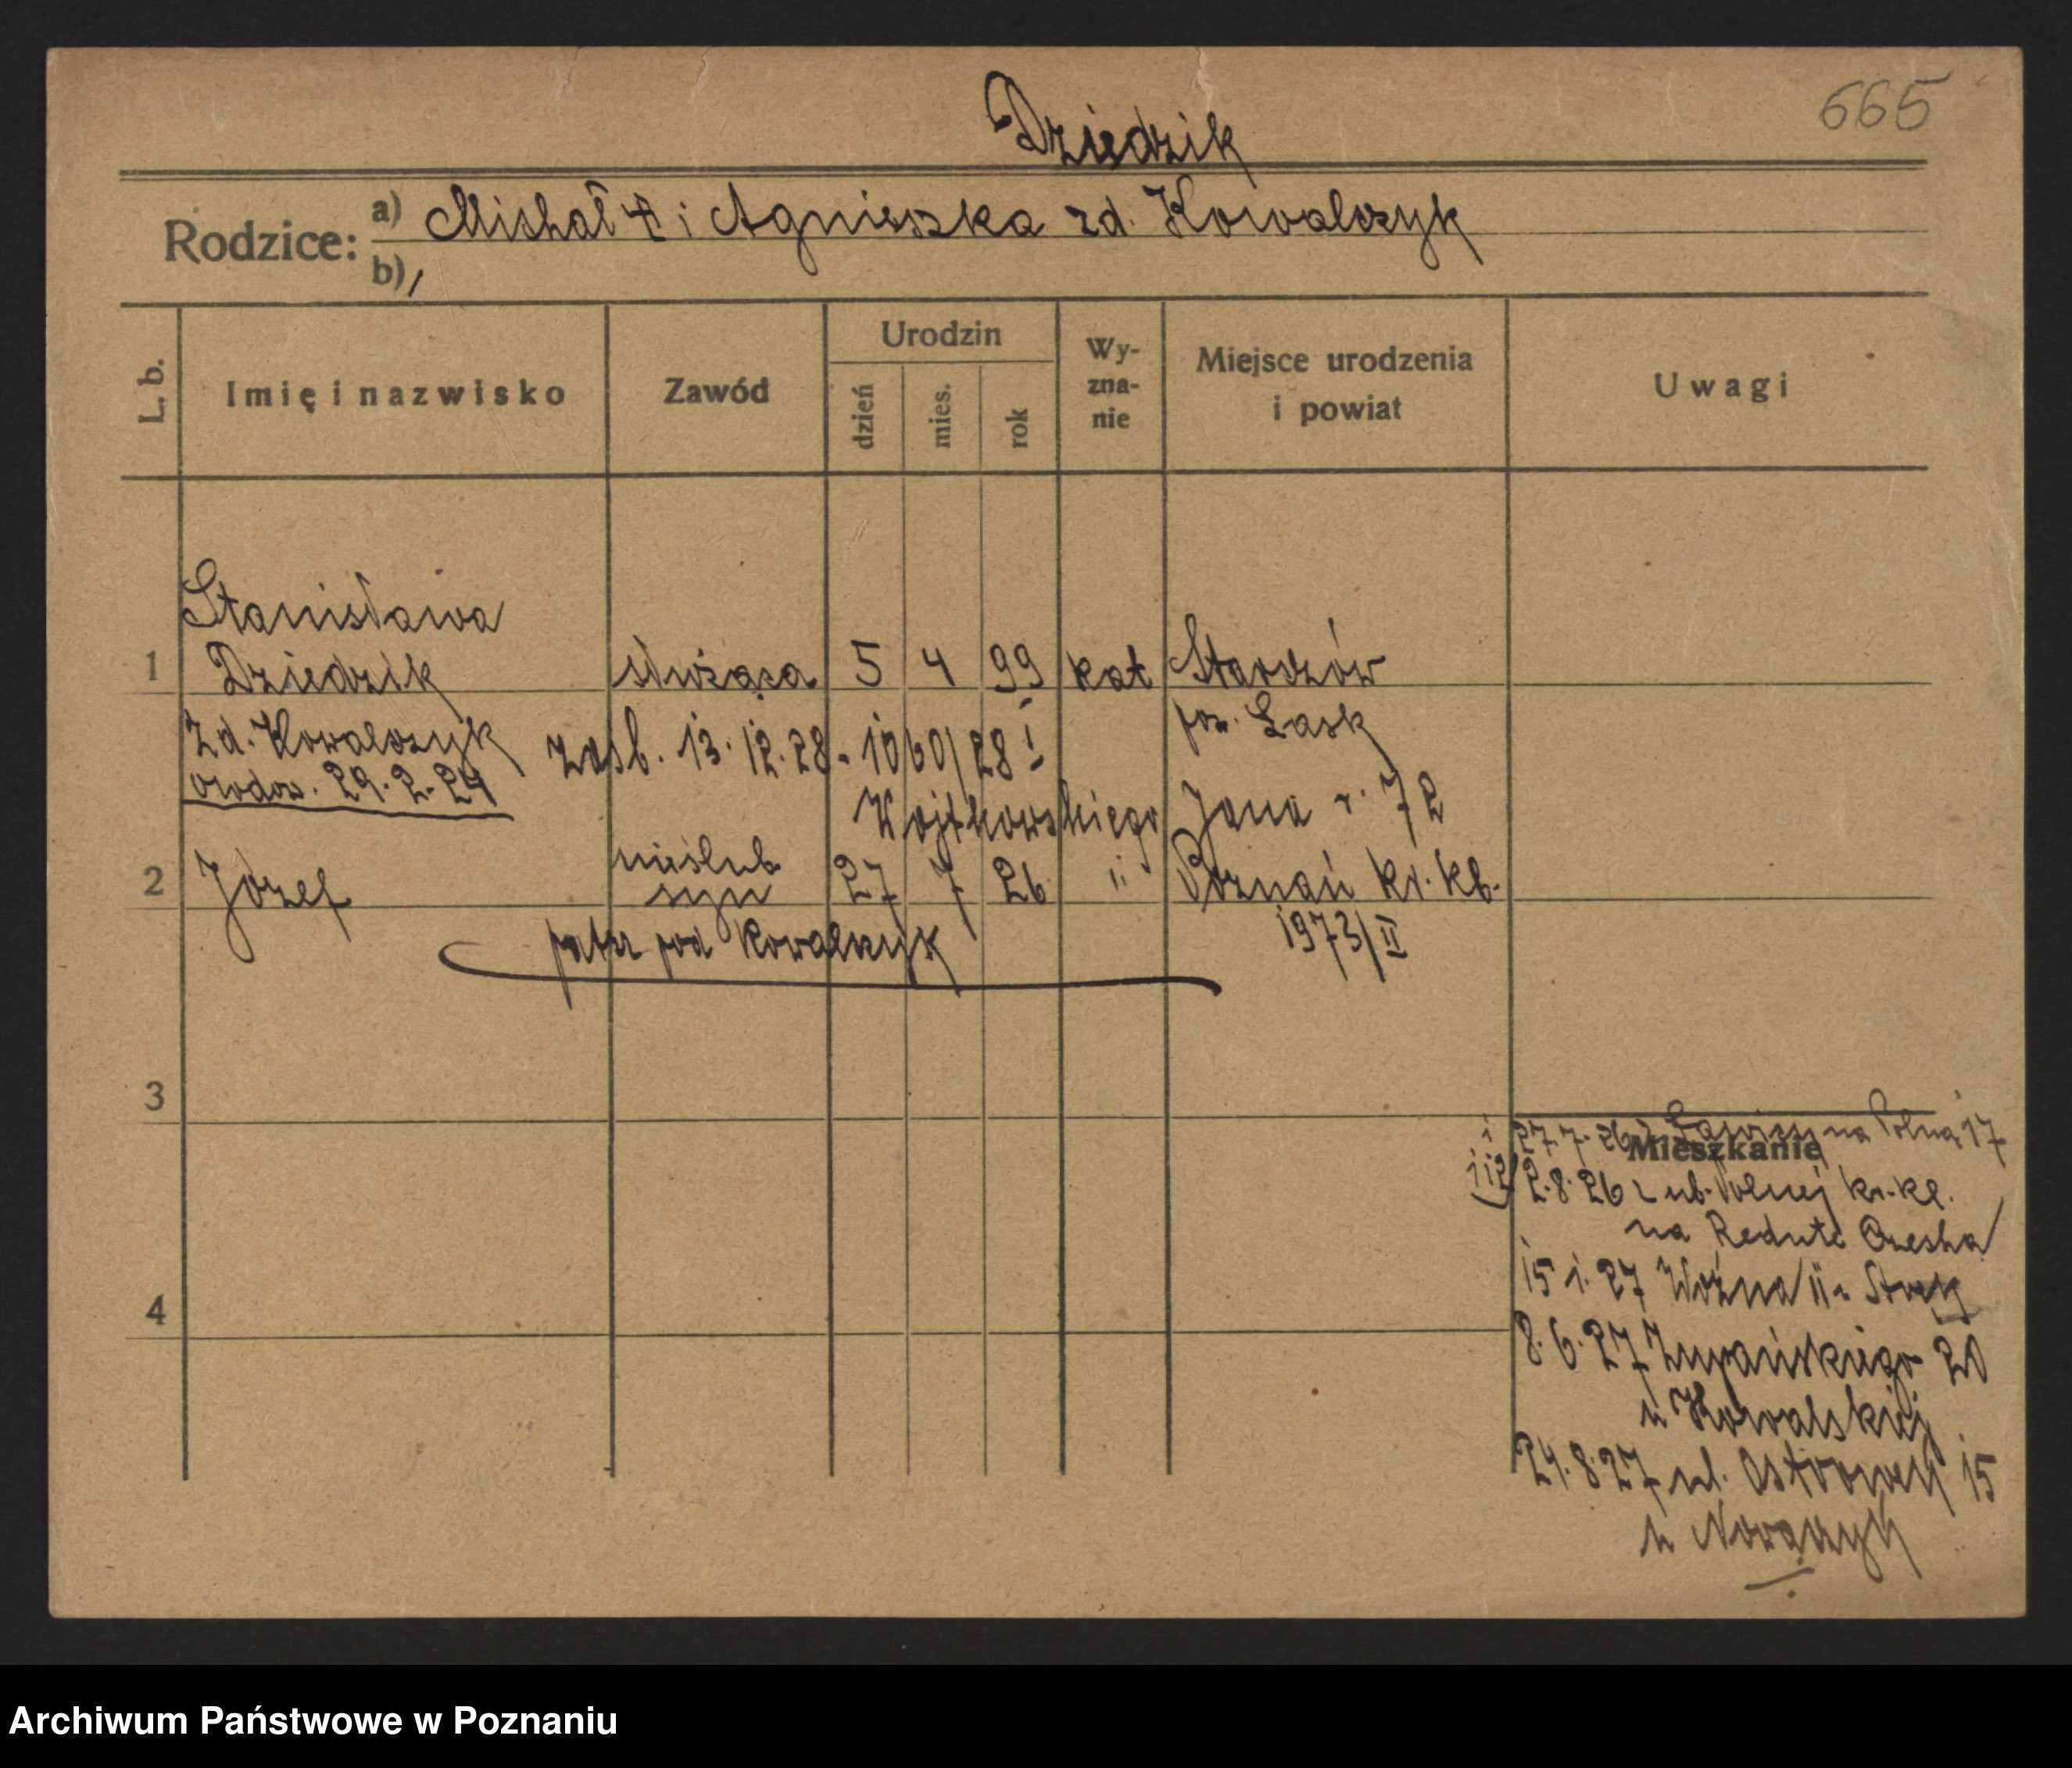 665
Dziedzik
Rodzice: a) Michał † i Agnieszka zd. Kowalczyk
b)
L. b. Imię i nazwisko Zawód Urodzin dzień mies. rok Wy-zna-nie Miejsce urodzenia i powiat Uwagi
Stanisława
1 Dziedzik służąca 5 4 99 kat
zd. Kowalczyk pow. Łask
owdow. 29.2.24 zaśb. 13.12.28 - 1060/28 I
Wojtkowskiego Jana r. 72
2 Józef nieślub. syn 27 7 26 " Poznań kr. kl.
patrz pod Kowalczyk 1973/II
3
27.7.26 na Polną 17
Mieszkanie
2.8.26 z ub. Polnej kr. kl.
na Redute
15.1.27 Woźna 11
8.6.27 Żupańskiego 20
u Kowalskiej
4
24.8.27 ul. 15
u
Archiwum Państwowe w Poznaniu